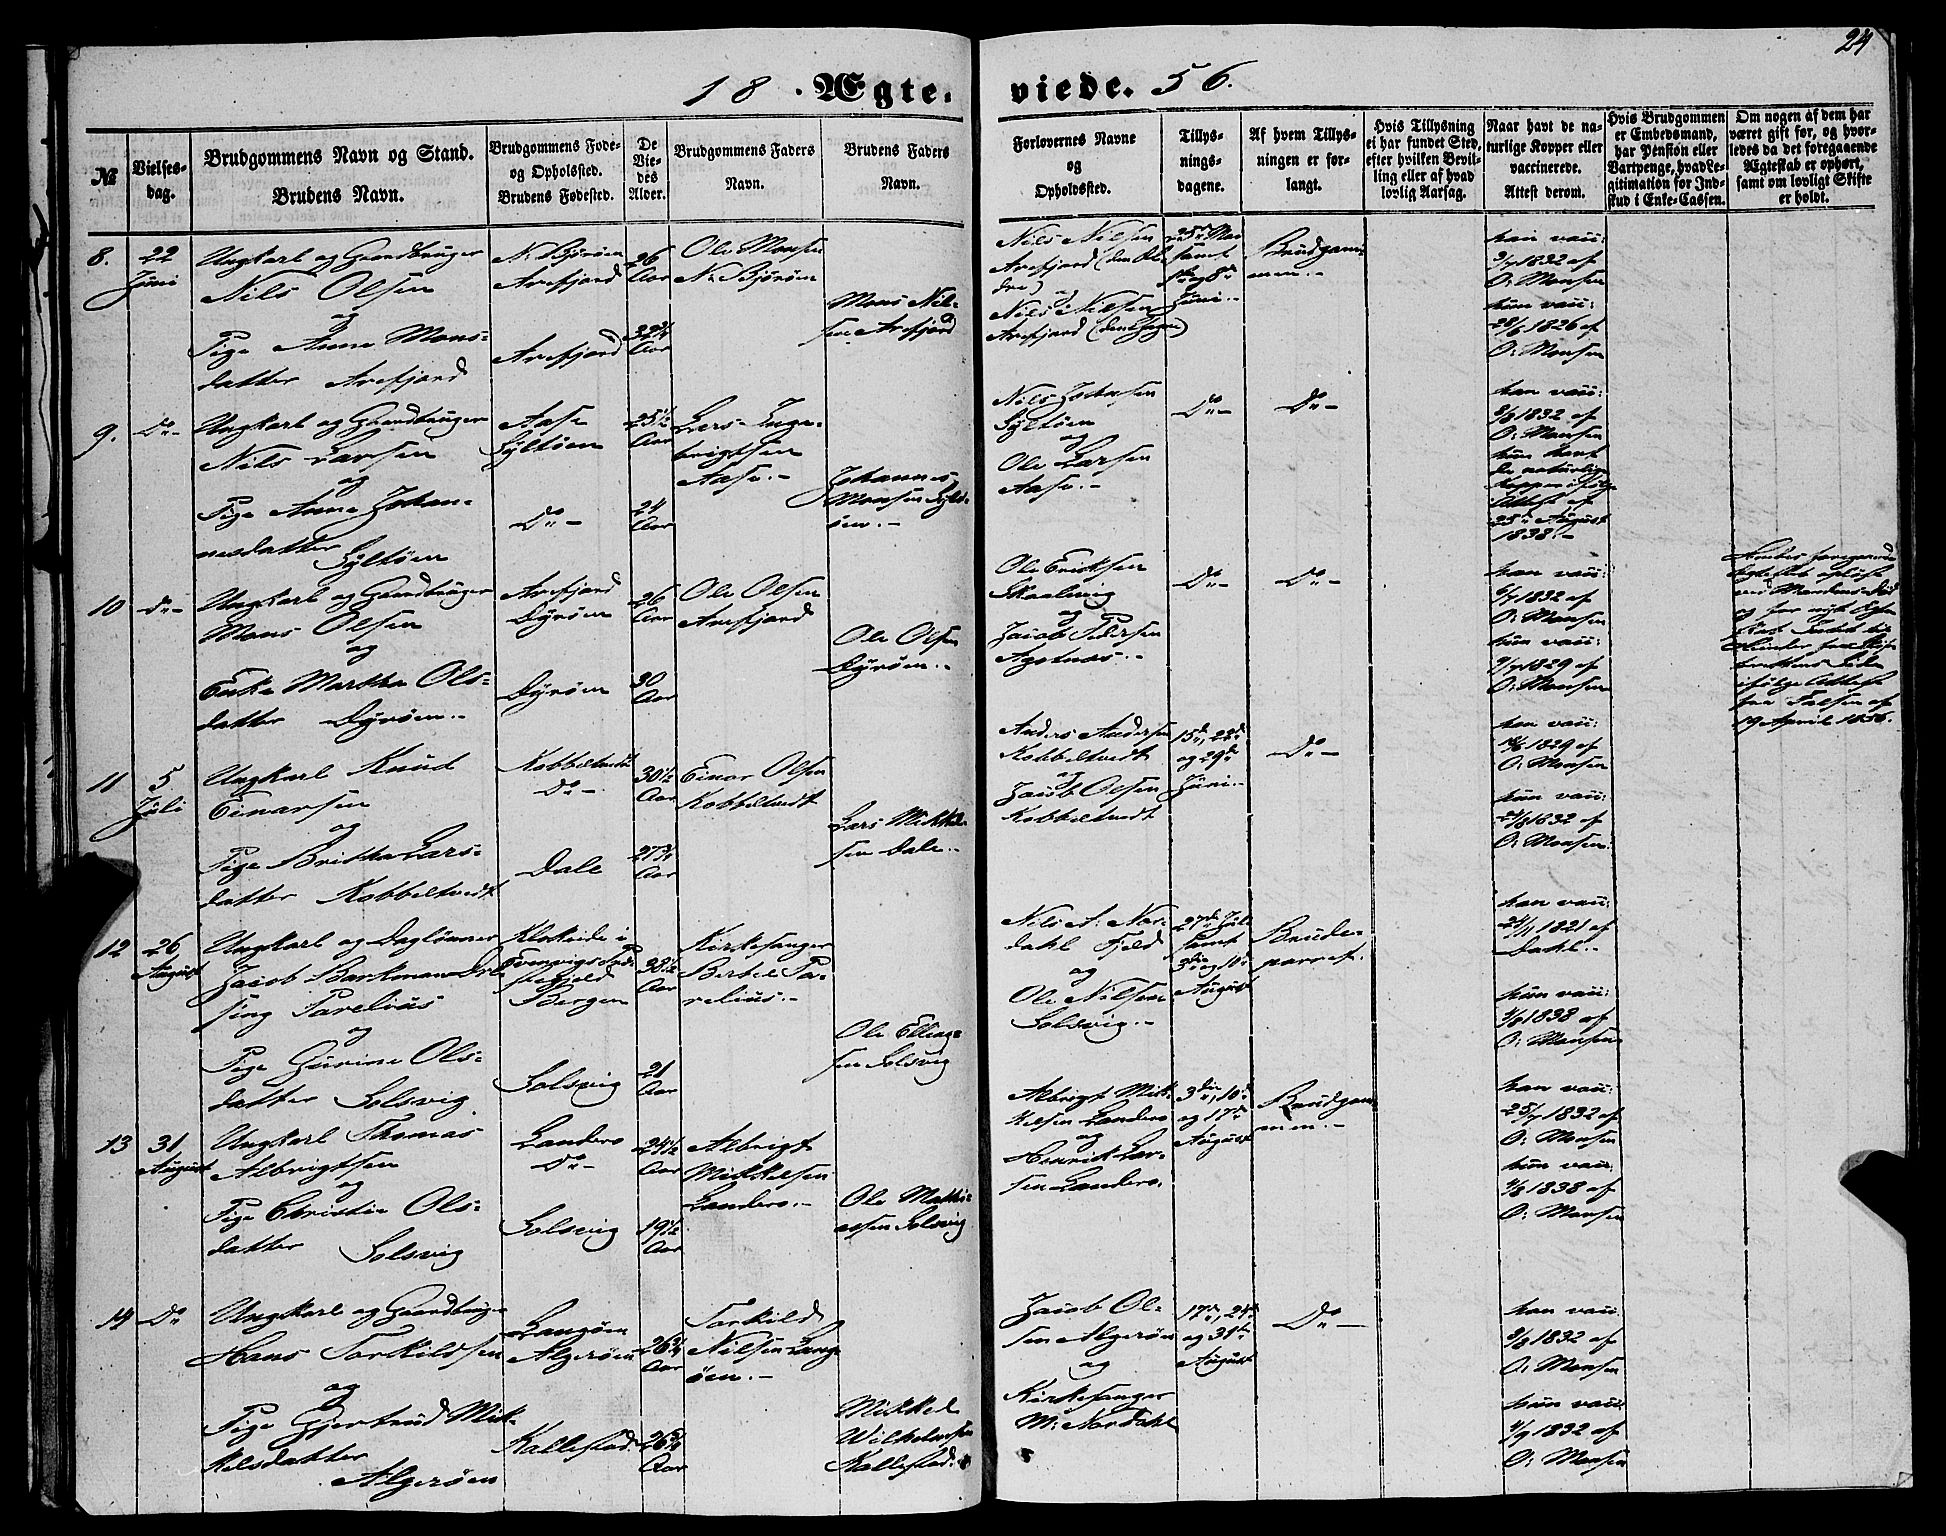 24
18 . Ægte.
viede. 56.
№
Vielses-
dag.
Brudgommens Navn og Stand.
Brudens Navn.
Brudgommens Føde-
og Opholdssted.
Brudens Fødested.
De
Vie-
des
Alder.
Brudgommens Faders
Navn.
Brudens Faders
Navn.
Forlovernes Navne
og
Opholdssted.
Tillys-
nings-
dagene.
Af hvem Tillys-
ningen er for-
langt.
Hvis Tillysning
ei har fundet Sted,
efter hvilken Bevil-
ling eller af hvad
lovlig Aarsag.
Naar havt de na-
turlige Kopper eller
vaccinerede.
Attest derom.
Hvis Brudgommen
er Embedsmand,
har Pension eller
Vartpenge, hvad Le-
gitimation for Ind-
skud i Enke-Cassen.
Om nogen af dem har
været gift før, og hvor-
ledes da det foregaaende
Ægteskab er ophørt,
samt om lovligt Skifte
er holdt.
8.
22
Juni
Ungkarl og Gaardbruger
Nils Olsen
og
Pige Anne Mons-
datter Arefjord
N. Bjorøen
Arefjord
Arefjord
26
Aar
32¾
Aar
Ole Monsen
N. Bjorøen
Mons Nil-
sen Arefjord
Nils Nilsen
Arefjord (den Æl-
dre)
og
Nils Nilsen
Arefjord (den Yngre)
25de Mai
samt
1ste og 8de
Juni.-
Brudgom-
men.-
han vacc:
3/7 1832 af
O: Monsen
hun vacc:
28/6 1826 af
O: Monsen
9.
Do-
Ungkarl og Gaardbruger
Nils Larsen
og
Pige Anna Johan-
nesdatter
Syltøen
Aase
Syltøen
Do-
25½
Aar
24
Aar
Lars Inge-
brigtsen
Aase.-
Johannes
Monsen Sylt-
øen.-
Nils Johnsen
Syltøen
og
Ole Larsen
Aase.-
Do-
Do-
han vacc:
2/8 1832 af
O: Monsen
hun havt
de naturlige
Kopper ifølge
Attest af
25de August
1838.-
10
Do-
Ungkarl og Gaardbruger
Mons Olsen
og
Enke Martha Ols-
datter Dyrøen.-
Arefjord
Dyrøen
Dyrøen
26
Aar
30
Aar
Ole Olsen
Arefjord
Ole Olsen
Dyrøen.-
Ole Eriksen
Skaalevig
og
Jacob Pedersen
Agotnæs.-
Do-
Do-
han vacc:
5/7 1832 af
O: Monsen
hun vacc:
9/7 1829 af
O: Monsen
Hendes foregaaende
ved Mandens Død
ifølge Attest
fra Falsen af
19 April 1856.
11
5
Juli
Ungkarl Knud
Einarsen
og
Pige Britha Lars-
datter Kobbeltvedt
Kobbeltvedt
Do-
Dale
30½
Aar
27¾
Aar
Einar Olsen
Kobbeltvedt
Lars Mikkel-
sen Dale.-
Anders Andersen
Kobbeltvedt
og
Jacob Olsen
Kobbeltvedt
15de, 22de
og 29de
Juni.-
Do-
han vacc:
1829 af
O: Monsen
hun vacc:
1832 af
O: Monsen
12
26
August
Ungkarl og Daglønner
Jacob Bartmann Dre-
sing Parelius
og
Pige Gurine Ols-
datter Solsvig
Bergen
Solsvig
38½
Aar
21
Aar
Kirkesanger
Bertel Pa-
relius.-
Ole Elling-
sen Solsvig
Nils A. Nor-
dahl Fjeld
og
Ole Nilsen
Solsvig.-
27de Juli
samt
3die og 10de
August
Brude-
parret.
han vacc:
24/1 1821 af
Dahl.-
hun vacc:
1838 af
O: Monsen
13
31
August
Ungkarl Thomas
Albrigtsen
og
Pige Christie Ols-
datter Solsvig
Landero
Do-
Solsvig
24½
Aar
19½
Aar
Albrigt
Mikkelsen
Landero.-
Ole Mathi-
assen Solsvig
Albrigt Mik-
kelsen Landero
og
Henrik Lar-
sen Landero.
3die, 10de
og 17de
August
Brudgom-
men.-
han vacc:
25/7 1832 af
O: Monsen
hun vacc:
1838 af
O: Monsen
14
Do
Ungkarl og Gaardbruger
Hans Torkildsen
og
Pige Gjertrud Mik-
kelsdatter
Algerøen
Langøen
Algerøen
Kallestad
26¾
Aar
26¾
Aar
Torkild
Nilsen Lang-
øen.-
Mikkel
Wilhelmsen
Kallestad.
Jacob Ol-
sen Algerøen
og
Kirkesanger
M: Nordahl
17de, 24de
og 31te
August
Do-
han vacc:
9/8 1832 af
O: Monsen
hun vacc:
4/9 1832 af
O: Monsen